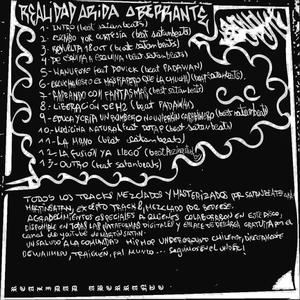 REALIDAD ARIDA ABERRANTE
1- INTRO (beat satanbeats)
2- ESCUPO POR CORTESIA (beat satanbeats)
3- REVUELTA 18 OCT (beat satanbeats)
4- DE ESQUINA A ESQUINA (beat satanbeats)
5- MANUFORT feat DOVICK (beat PADAWAN)
6- (beat satanbeats)
7- BAILANDO CON FANTASMAS (beat satanbeats)
8- LIBERACIÓN DE M2 (beat PADAWAN)
9- EDUCA Y CRIA UN BOMBERO NO UN PERRO CARABINERO
10- MEDICINA NATURAL feat TOTAP (beat satanbeats)
11- LA MANO (beat satanbeats)
12- LA FUSIÓN YA LLEGÓ
13- OUTRO (beat satanbeats)
TODOS LOS TRACKS MEZCLADOS Y MASTERIZADOS POR SATANBEATS AND
MARTINSATAN, EXCEPTO TRACK 8, MEZCLADO POR
AGRADECIMIENTOS ESPECIALES A QUIENES COLABORARON EN ESTE DISCO,
DISPONIBLE EN TODAS LAS PLATAFORMAS DIGITALES Y ENLACE DE DESCARGA GRATUITA POR EL
CANAL DE YOUTUBE DE MARTIN SATAN.
UN SALUDO A LA COMUNIDAD HIPHOP UNDERGROUND CHILENO, DIRECTAMENTE
DE HUAIHUEN, TRAIGUEN, PAL MUNTO... SEGUIMOS EN EL UNDER!